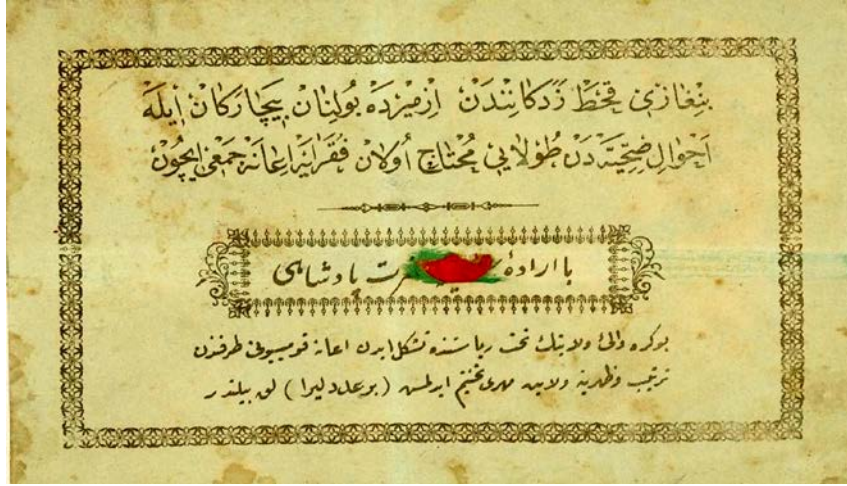 بنغازی قحط زدکانندن ازمیرده بولنان بیچارکان ایله
احوال صحیه دن طولایی محتاج اولان فقرایه اعانه جمعی ایچون
با ارادهٔ حضرت پادشاهی
بو کره والیٔ ولایتك تحت ریاستنده تشکل ایدن اعانه قومیسیونی طرفندن
ترتیب وظهرینه ولایت مهری تختیم ایدلمش (بر عدد لیرا) لق بیلتدر